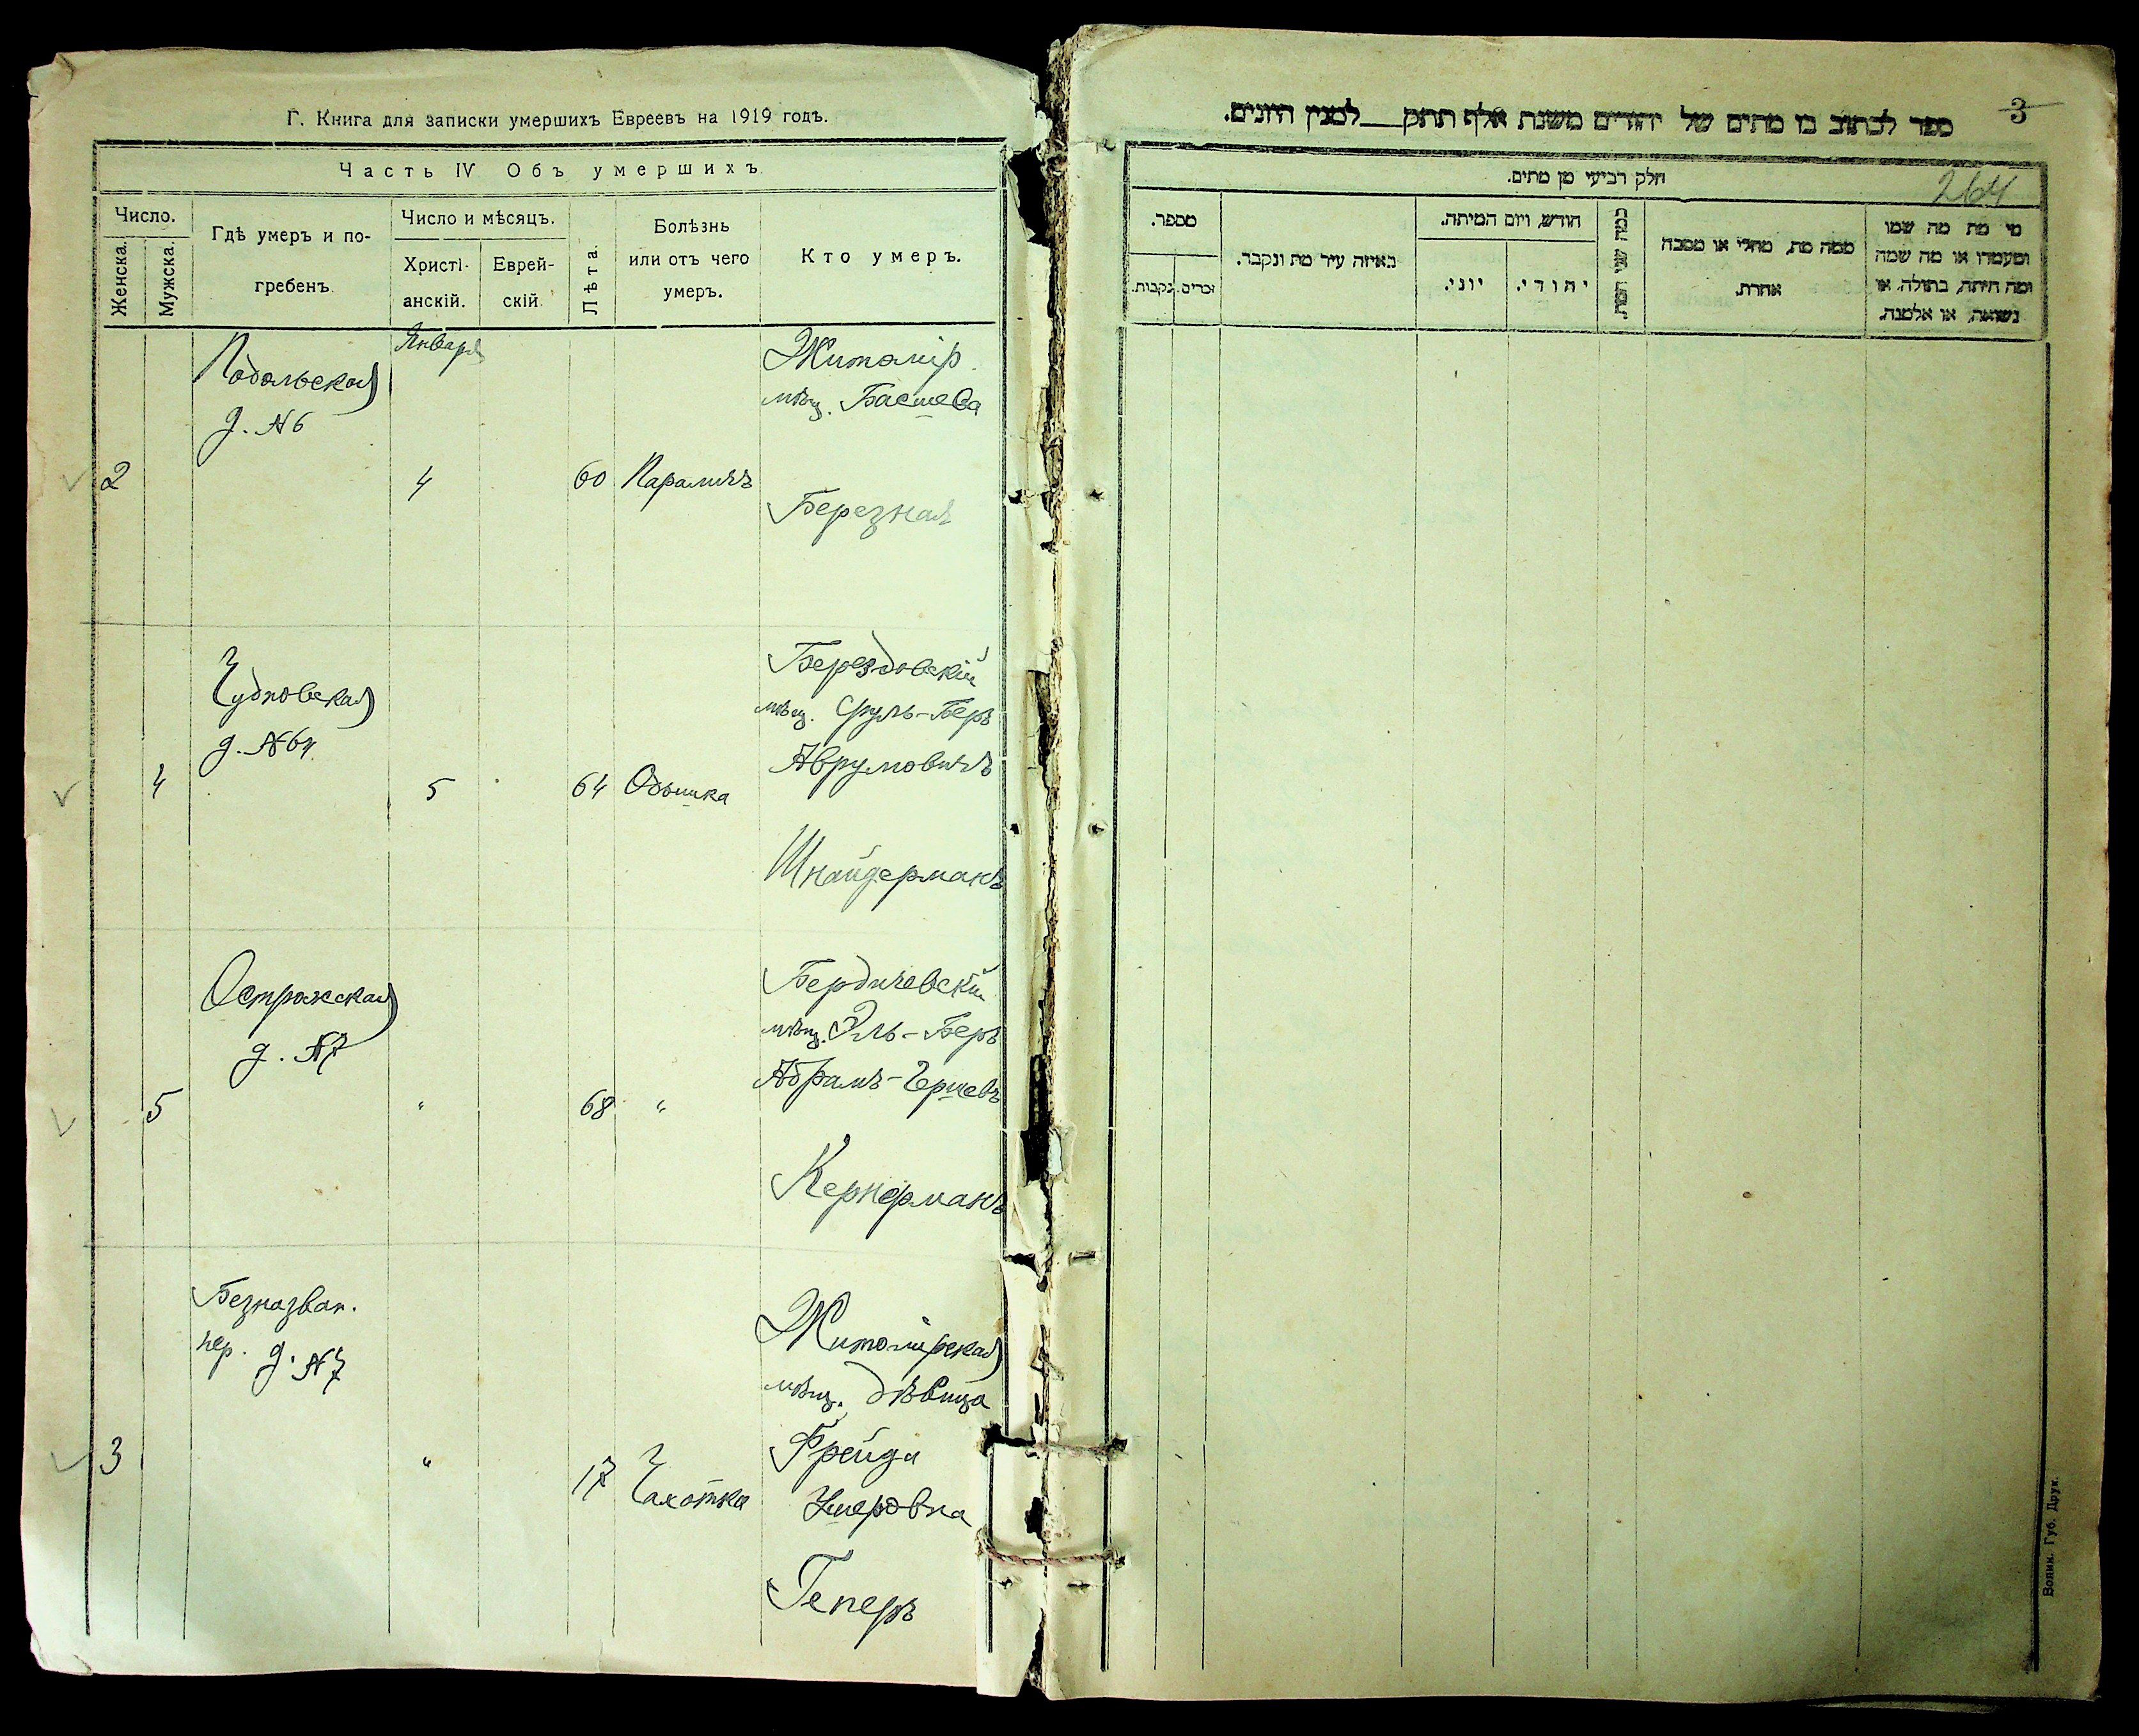 Г. Книга для записки умершихъ Евреевъ на 1919 годъ.
Часть IV Объ умершихъ.
Число.
Женска.
Мужска.
Гдѣ умеръ и по-
гребенъ.
Число и мѣсяцъ.
Христі-
анскій.
Еврей-
скій.
Лѣта.
Болѣзнь
или отъ чего
умеръ.
Кто умеръ.
Января
Подольская
д. №6
2
4
60
Параличъ
Житомір.
мѣщ. Башева
Березная
Чудновская
д. №64
4
5
64
Одышка
Берездовскій
мѣщ. Сруль-Беръ
Аврумовичъ
Шнайдерманъ
Острожская
д. №7
5
"
68
"
Бердичевскій
мѣщ. Эль-Беръ
Абрамъ-Гершевъ
Кернерманъ
Безназван.
пер. д. №7
3
"
17
Чахотка
Житомірская
мѣщ. дѣвица
Фрейда
Умеровна
Геперъ
3
ספר לכתוב בו מתים של יהודים משנת אלף תתק__למנין היונים.
264
חלק רביעי מן מתים.
מספר.
זכרים.
נקבות.
באיזה עיר מת ונקבר.
חודש, ויום המיתה.
יוני.
יהודי.
כמה שני המת.
ממה מת, מחלי או מסבה
אחרת.
מי מת מה שמו
ומעמדו או מה שמה
ומה היתה, בתולה, או
נשואה, או אלמנה.
Волин. Губ. Друк.